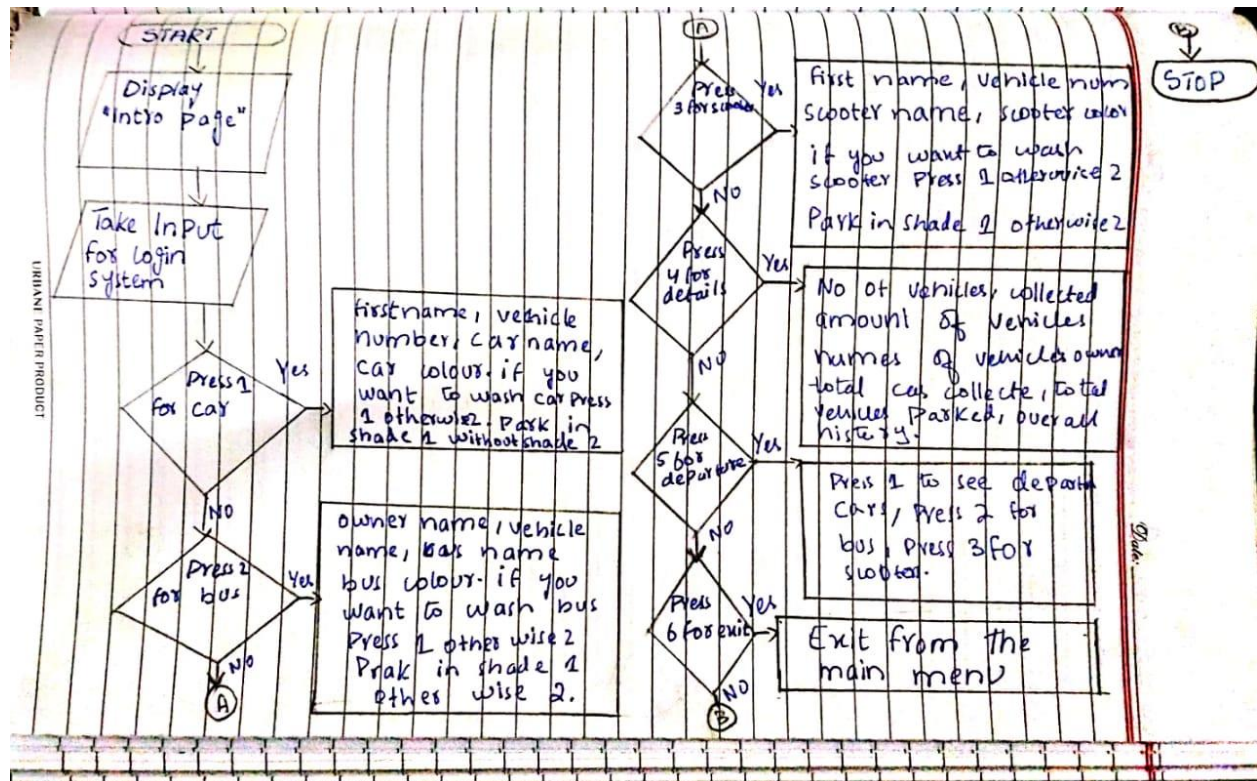 START
Display
"Intro Page"
Take Input
for login
system
Press 1
for car
Yes
firstname, vehicle
number, car name,
car colour. if you
want to wash car press
1 otherwise2. Park in
shade 1 without shade 2
NO
Press 2
for bus
Yes
owner name, vehicle
name, bus name
bus colour. if you
want to wash bus
Press 1 other wise 2
Prak in shade 1
other wise 2.
NO
A
A
Press
3 for
Yes
first name, vehicle num
scooter name, scooter color
if you want to wash
scooter Press 1 otherwice 2
Park in shade 1 otherwise 2
NO
Press
4 for
details
Yes
No of vehicles, collected
amount of vehicles
names of vehicles owner
total cas collecte, total
vehicles Parked, overall
histery.
NO
Press
5 for
departure
Yes
Press 1 to see depart
Cars, Press 2 for
bus, Press 3 for
scooter.
NO
Press
6 for exit
Yes
Exit from the
main menu
NO
B
B
STOP
URBANE PAPER PRODUCT
Date: